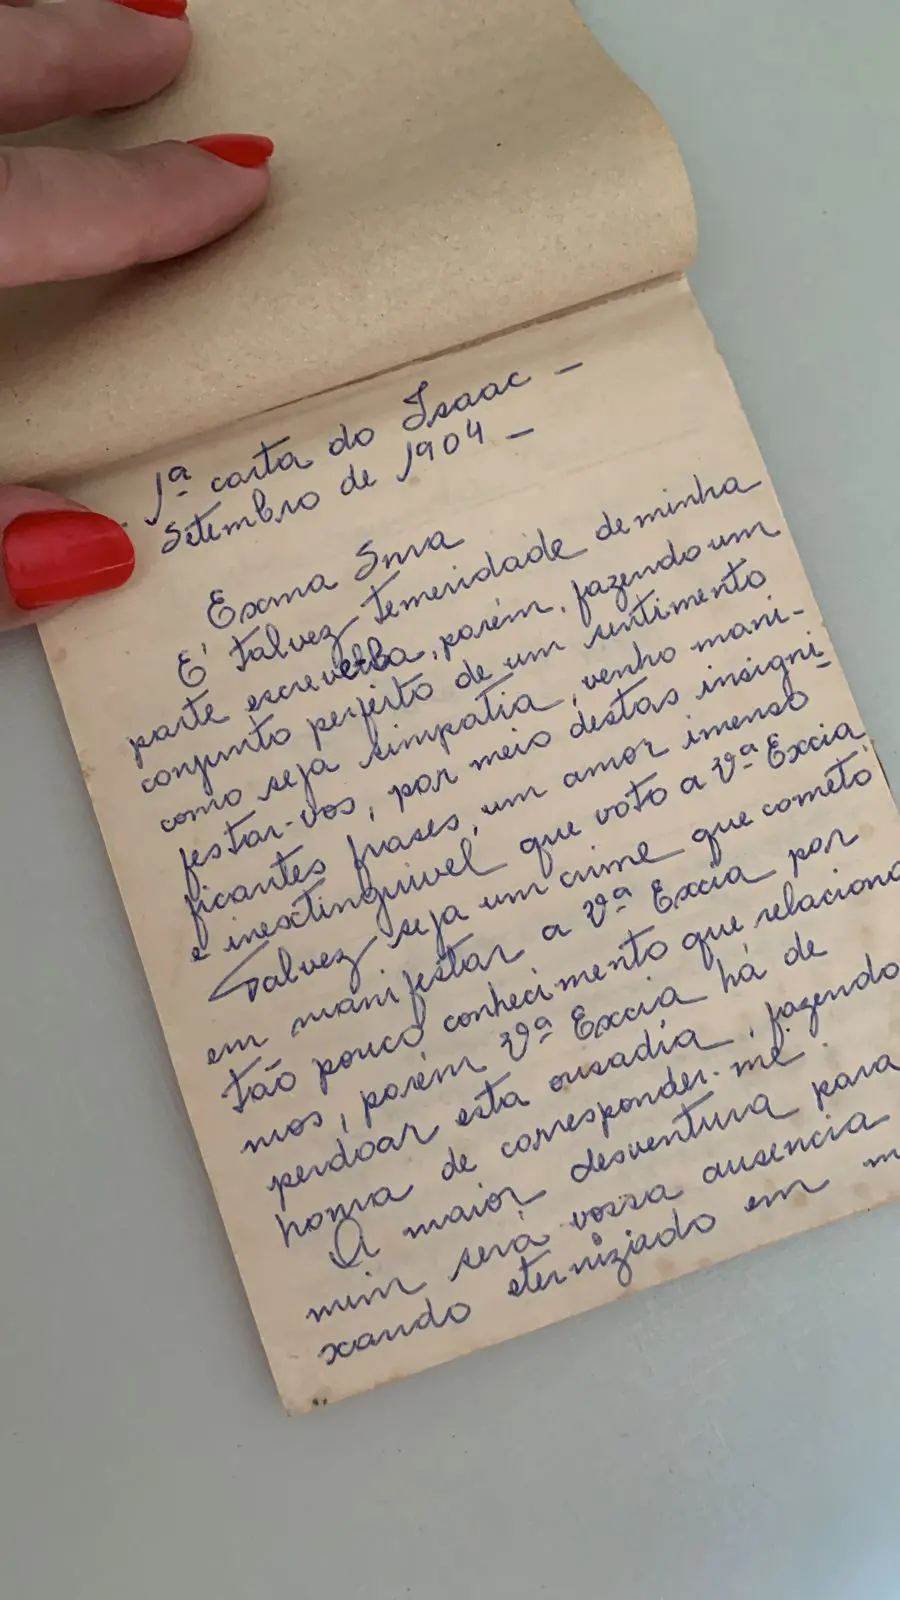 1ª carta do Isaac -
Setembro de 1904 -
Exma Snra
E' talvez temeridade de minha
parte escrevêlba, porém, fazendo um
conjunto perfeito de um sentimento
como seja simpatia, venho mani-
festar-vos, por meio destas insigni-
ficantes frases, um amor imenso
e inextinguivel que voto a Vª Excia
Talvez seja um crime que cometo
em manifestar a Vª Excia por
tão pouco conhecimento que relaciona
mos, porém Vª Excia há de
perdoar esta ousadia, fazendo
honra de corresponder-me.
A maior desventura para
mim será vossa ausencia
xando eternizado em m